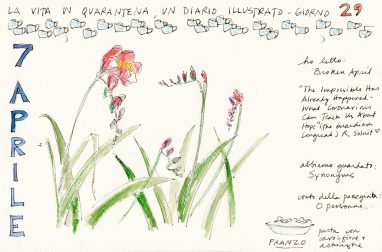 LA VITA IN QUARANTENA UN DIARIO ILLUSTRATO - GIORNO 29
7 APRILE
ho letto:
Broken April
"The Impossible Has
Already Happened:
What Coronavirus
Can Teach Us About
Hope" (The Guardian
Longread) R. Solnit
abbiamo guardato:
Synonyms
conto della passeggiata:
0 persone
PRANZO
pasta con
cavolfiore e
acciughe